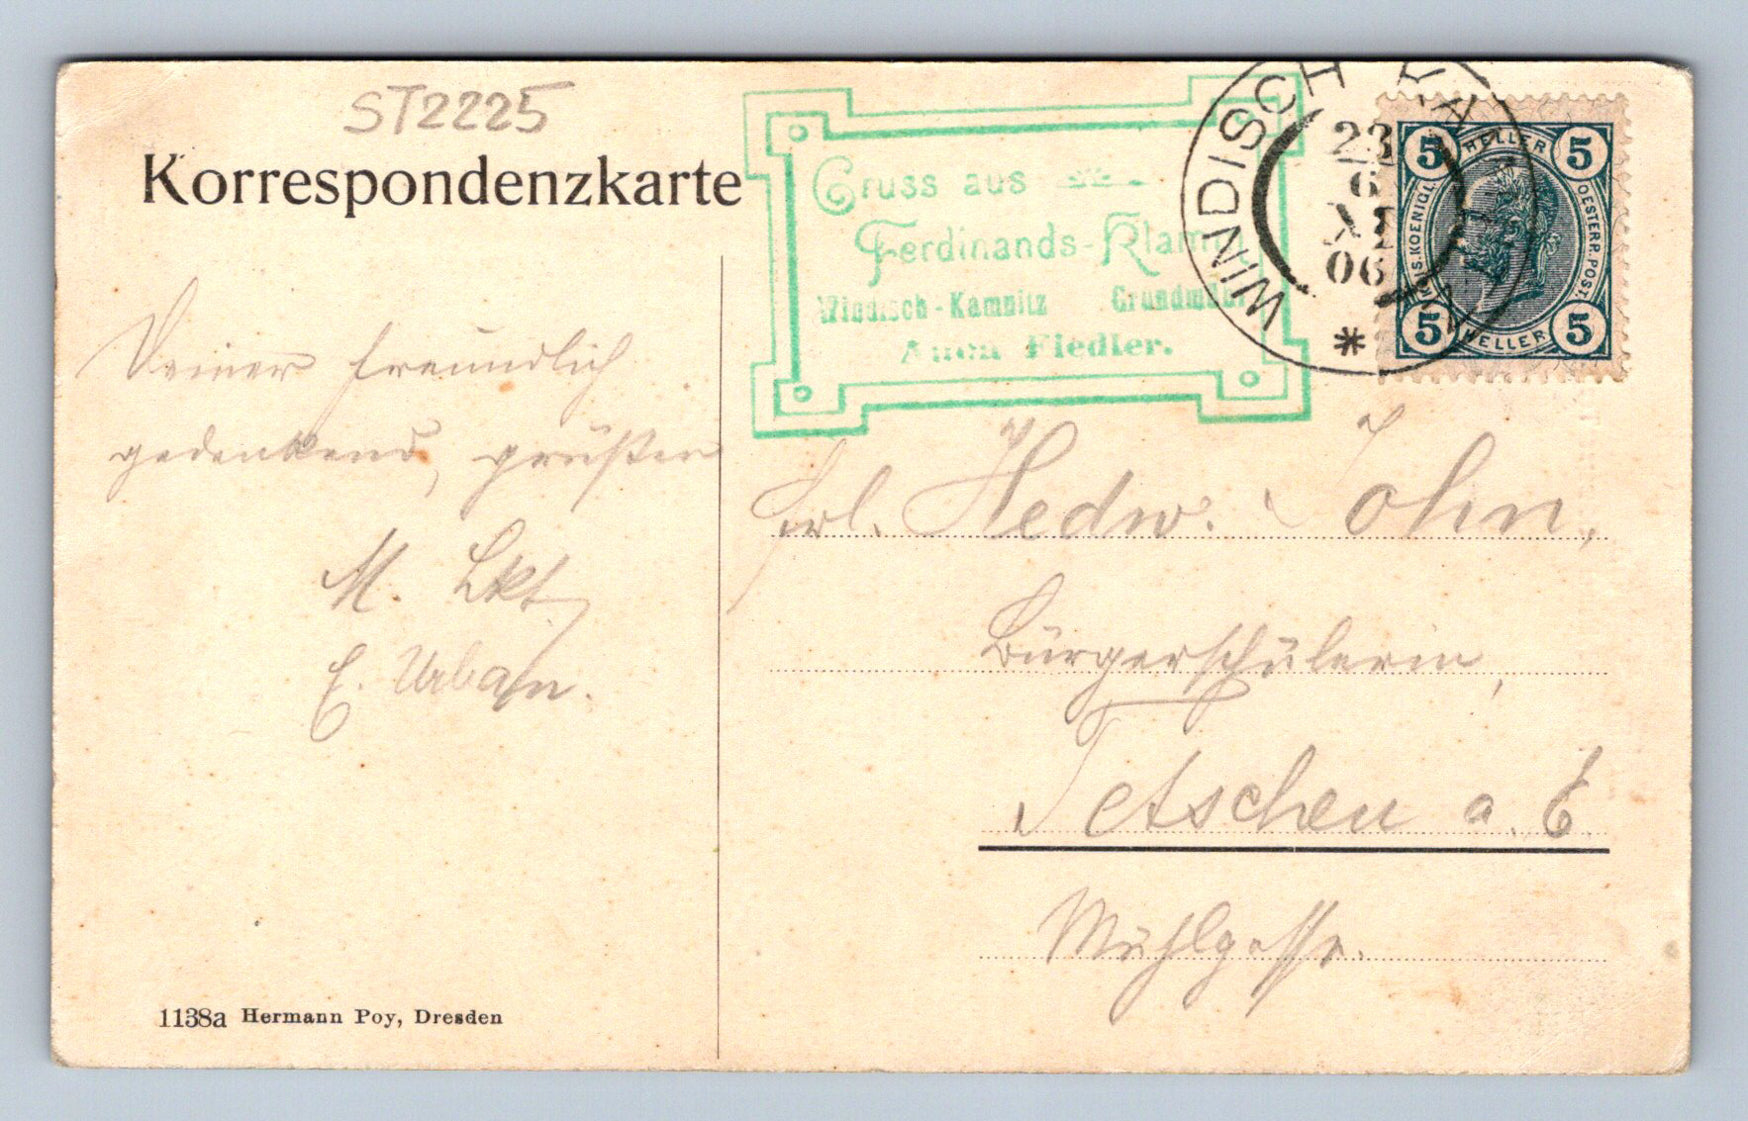 ST2225
Korrespondenzkarte
Gruss aus
Ferdinands-Klamm
Windisch-Kamnitz Grundmühl
Anton Fiedler.
WINDISCH KA
23
6
XI
06
*
5 HELLER 5
KAIS. KOENIGL. OESTERR. POST.
5 HELLER 5
Deiner freundlich
gedenkend, grüßen
M.
E. Urban.
Frl. Hedw. John,
Bürgerschülerin,
Tetschen a. E.
Mühlgasse.
1138a Hermann Poy, Dresden